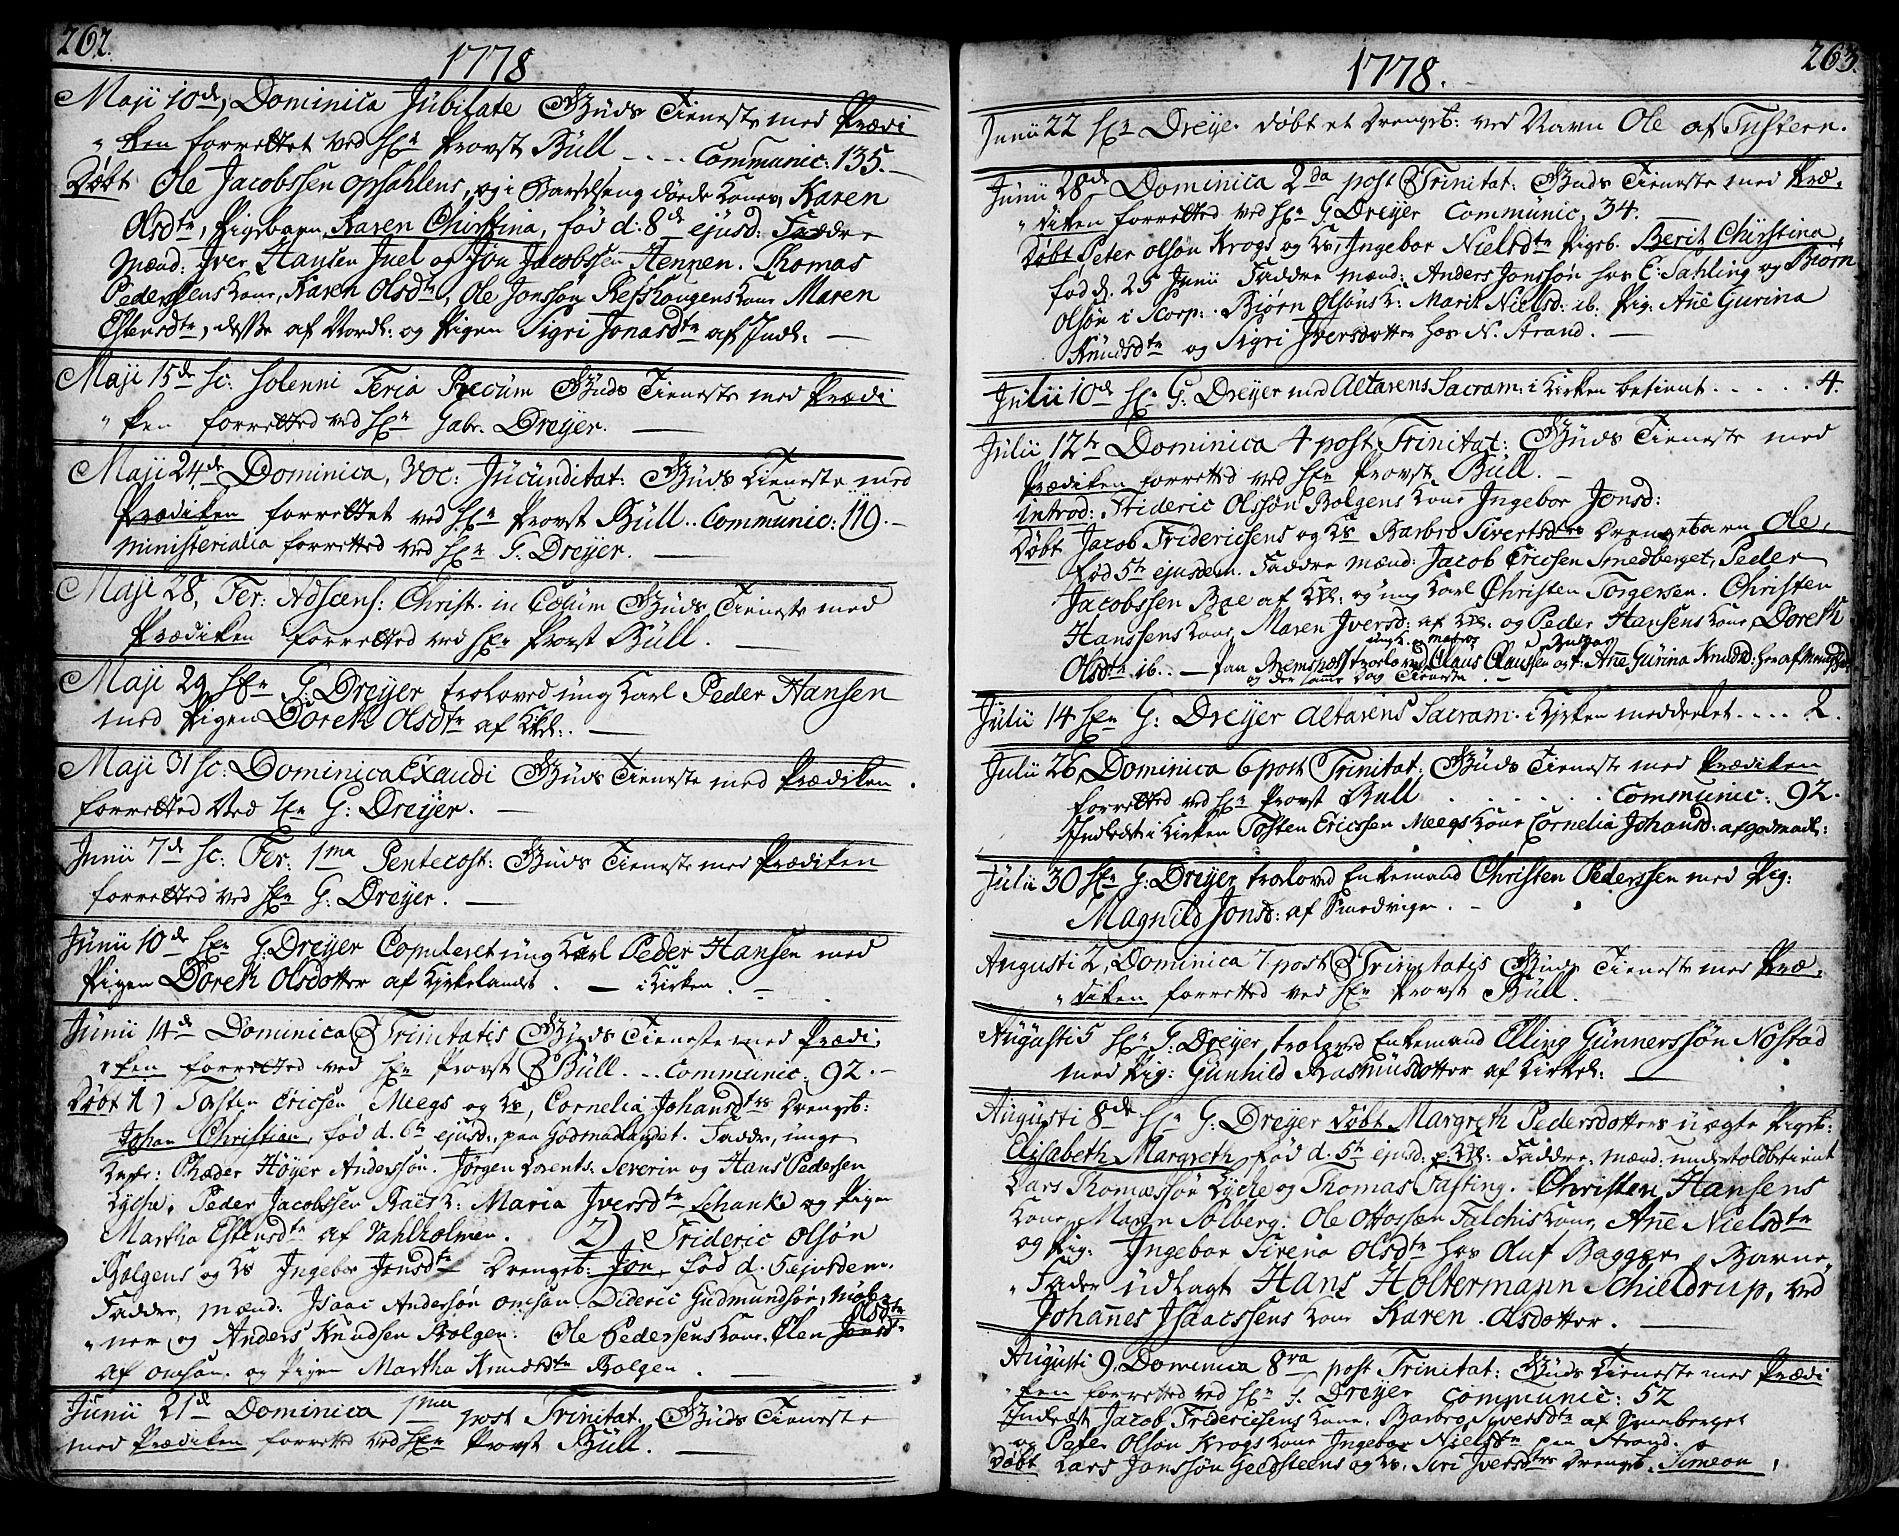 262.
1778
Maji 10de, Dominica Jubilate Guds Tieneste med Prædi
„ken forrettet ved Hr Provst Büll - - - - Communic: 135. -
Døbt Ole Jacobssen opsahlens, og i Barselseng døde Kones, Karen
Olsdtr, Pigebarn, Karen Christina, fød d. 8de ejusd: Faddre
Mænd: Iver Hansen Juel og Jon Jacobssen Hennen. Thomas
Pederssens Kone, Karen Olsdtr, Ole Jonssøn Kone Maren
Estensdtr, desse af Nordl: og Pigen Sigri Jonasdtr af Indl: -
Maji 15de sc: solenni Feria Precum Guds Tieneste med Prædi
„ken forretted ved Hr Gabr. Dreyer. -
Maji 24de Dominica, Voc: Jucunditat: Guds Tieneste med
Prædiken forrettet ved Hr Provst Büll .. Communic: 119. -
Ministerialia forretted ved Hr G. Dreyer. -
Maji 28, Fer: Adscens: Christ. in Coelum Guds Tieneste med
Prædiken forretted ved Hr Provst Büll. -
Maji 29 Hr G: Dreyer troloved ung Karl Peder Hansen
med Pigen Doreth Olsdtr af Kkl: -
Maji 31 sc: Dominica Exaudi Guds Tieneste med Prædiken
forretted Ved Hr G: Dreyer. -
Junii 7de sc: Fer: 1ma Pentecost: Guds Tieneste med Prædiken
forretted ved Hr G: Dreyer. -
Junii 10de Hr G: Dreyer Copuleret ung Karl Peder Hansen med
Pigen Doreth Olsdotter af Kirkelandet. - i Kirken. -
Junii 14de Dominica Trinitatis Guds Tieneste med Prædi,
„ken forretted ved Hr Provst Büll. .. Communic: 92. -
Døbt 1) Tosten Ericsen Meegs og Ks, Cornelia Johansdtrs Drengeb:
Johan Christian, fød d. 6te ejusd:, paa Godmalandet. Faddre, unge
Karle: Peder Höyer Anderssøn. Jörgen Lorents: Severin og Hans Pedersen
Lyche, Peder Jacobssen K: Maria Iversdtr Schanke og Pigen
Martha Estensdtr af Vahlholmen. 2) Frideric Olsøn
Bolgens og Ks Ingebor Jonsdtr Drengeb: Jon, fød d. 5 ejusdem.
Faddre, Mænd: Isaac Andersøn omsan Dideric Gudmundsøn,
„ner og Anders Knudsen Bolgen: Ole Pedersens Kone, Elen Jonsd: Olsdtr
af omsan. og Pigen Martha Knudsdtr Bolgen. -
Junii 21de Dominica 1ma post Trinitat. Guds Tieneste
med Prædiken forretted ved Hr Provst Büll. -
263.
1778.
Junii 22 Hr Dreyer døbt et Drengeb: ved Navn Ole af Tusteren.
Junii 28de Dominica 2da post Trinitat: Guds Tieneste med Præ,
„diken forretted ved Hr G: Dreyer Communic, 34. -
Døbt Peter Olsøn Krogs og Ks, Ingebor Nielsdtr Pigeb. Berit Christina,
fød d. 25 Junii Faddre Mænd: Anders Jonssøn hos E: Sahling og Biørn
Olsøn i Scorp: Biørn Olsøns K: Marit Nielsd: ib: Pig: Anne Gurina
Knudsdtr og Sigri Iversdotter hos N. Strand. -
Julii 10de Hr G: Dreyer med Altarens Sacram: i Kirken betient. . . . . . 4.
Julii 12te Dominica 4 post Trinitat: Guds Tieneste med
Prædiken forretted ved Hr Provst Büll. -
Introd: Frideric Olssøn Bolgens Kone Ingebor Jonsd:
Døbt Jacob Fridericsens og Ks Barbro Sivertsdtrs Drengebarn Ole,
Fød 5te ejusdem. Faddre Mænd: Jacob Ericsen Smedberget, Peder
Jacobssen Bae af Kkl: og ung Karl Christen Torgersen. Christen
Hanssens Kone Maren Iversd: af Kkl: og Peder Hansens Kone, Doreth
Olsdtr ib. - Paa Bremsnes troloved Claus Clausen og Anne Gurina Knudsd:
og den samme Dag Tieneste. -
Julii 14 Hr G: Dreyer Altarens Sacram: i Kirken meddeelet. . . . . 2.
Julii 26 Dominica 6 post Trinitat: Guds Tieneste med Prædiken
forretted ved Hr Provst Büll . . . . . . Communic: 92.
Indledt i Kirken Tosten Ericssen Meegs Kone Cornelia Johansd: af Godmadl:
Julii 30 Hr G: Dreyer troloved Enkemand Christen Pederssen med Pig:
Magnild Jonsd: af Smedvigen. -
Augusti 2, Dominica 7 post Trinitatis Guds Tieneste med Præ,
„diken forretted ved Hr Provst Büll. -
Augusti 5 Hr G: Dreyer, troloved Enkemand Elling Gunnerssøn Nostad
med Pig: Gunhild Rasmusdotter af Kirkel: -
Augusti 8de Hr G: Dreyer døbt Margreth Pedersdotters uægte Pigeb:
Elisabeth Margreth, fød d. 5te ejusd: p. Kkl: Faddre, Mænd: undertoldbetient
Lars Thomæssøn Lyche og Thomas Fasting. Christen Hansens
Kone Maren Solberg: Ole Ottossen Falchis Kone, Anne Nielsdtr
og Pig: Ingebor Sirena Olsdtr hos Oluf Bagger, Barne,
„Fader udlagt Hans Holtermann Schieldrup, ved
Johannes Isaacssens Kone Karen Olsdotter. -
Augusti 9. Dominica 8va post Trinitat: Guds Tieneste med Prædi
„ken forretted ved Hr G. Dreyer Communic: 52
Indledt Jacob Fridericsens Kone, Barbro Siversdtr af Smedberget
og Peter Olsøn Krogs Kone Ingebor Nielsdtr paa Strand.
Døbt Lars Jonssøn Geedsteens og Ks, Siri Iversdtrs Drengeb. Simeon,